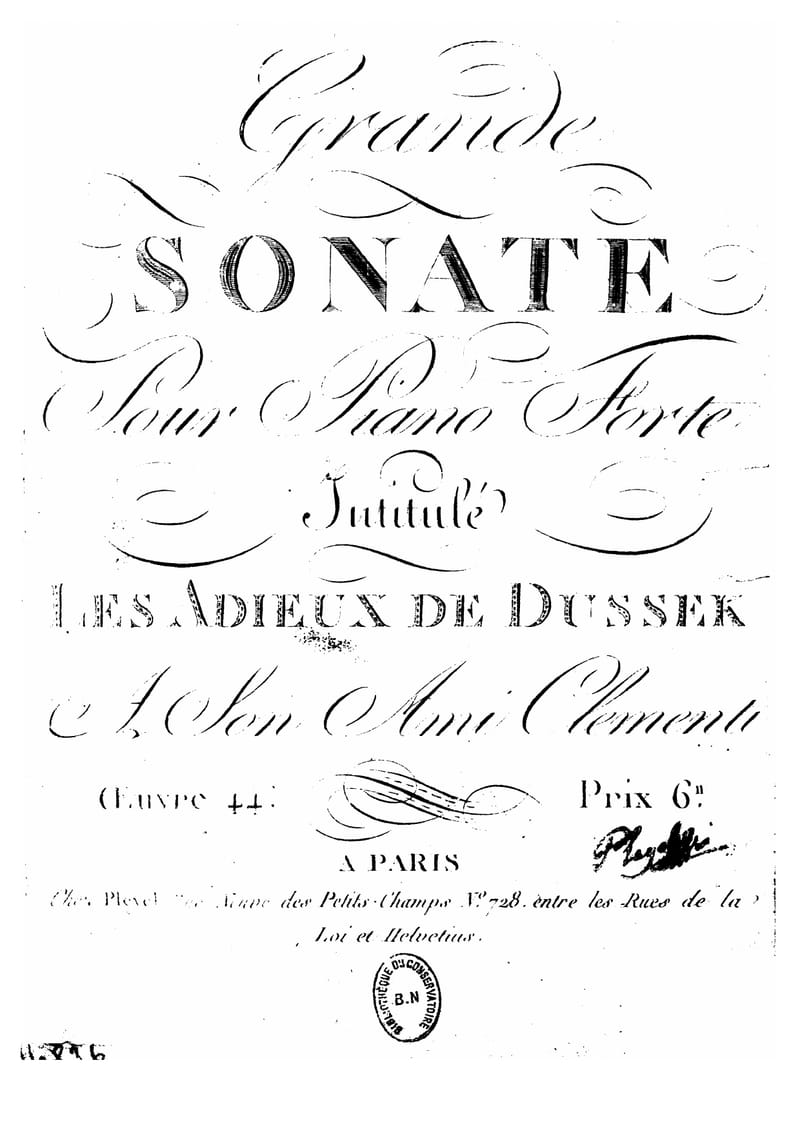 Grande
SONATE
Pour Piano Forte
Intitulé
LES ADIEUX DE DUSSEK
A Son Ami Clementi
Œuvre 44: Prix 6ᵗᵗ
A PARIS
Chez Pleyel Rue Neuve des Petits-Champs Nº 728. entre les Rues de la
Loi et Helvetius.
BIBLIOTHÈQUE DU CONSERVATOIRE
B.N